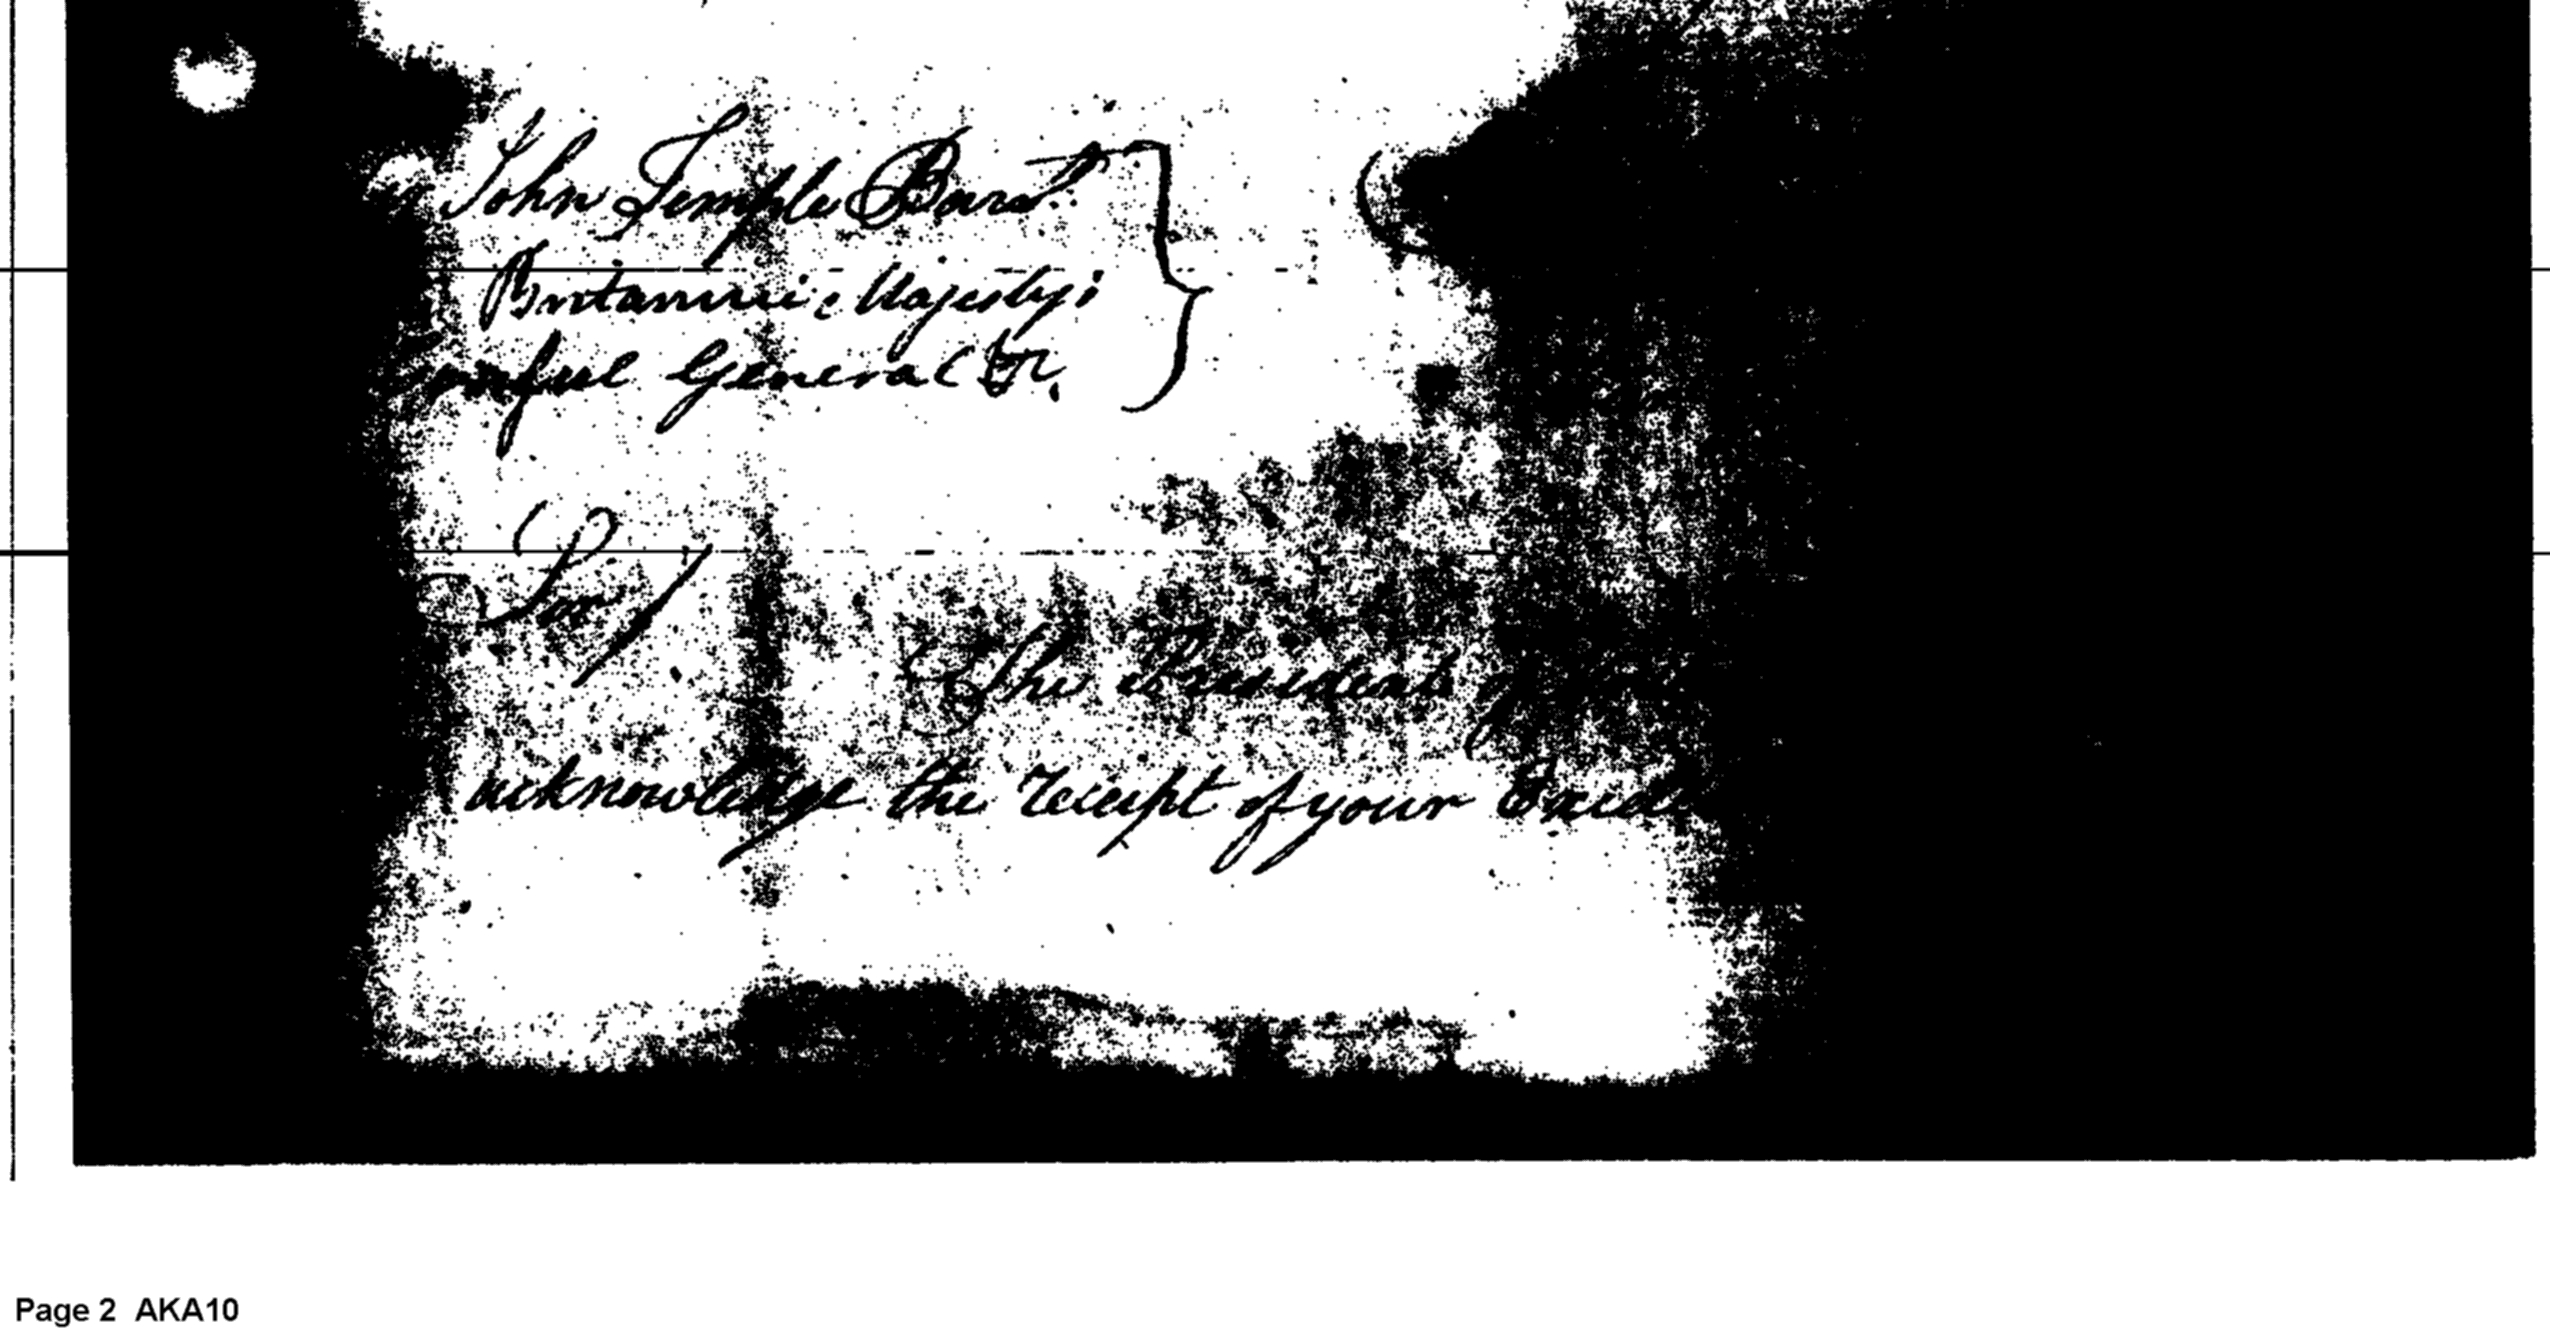 John Temple Bart.
Britannic Majesty's
Consul General &c.
Sir/
The President of
acknowledge the receipt of your
Page 2 AKA10